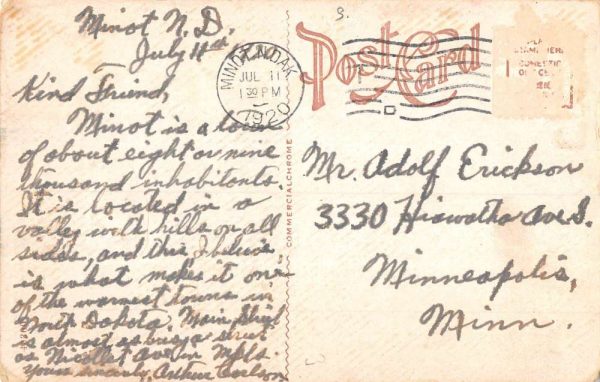 Minot N. D.
July 11th
Kind Friend,
Minot is a town
of about eight or nine
thousand inhabitants.
It is located in a
valley with hills on all
sides, and this I believe
is what makes it one
of the warmest towns in
North Dakota. Main Street
is almost as busy a street
as Nicollet Ave in Mpls.
Yours sincerely, Arthur Carlson
COMMERCIALCHROME
Post Card
MINOT, N. DAK.
JUL 11
1 30 PM
1920
PLACE
STAMP HERE
DOMESTIC
ONE CENT
Mr. Adolf Erickson
3330 Hiawatha Ave S.
Minneapolis,
Minn.